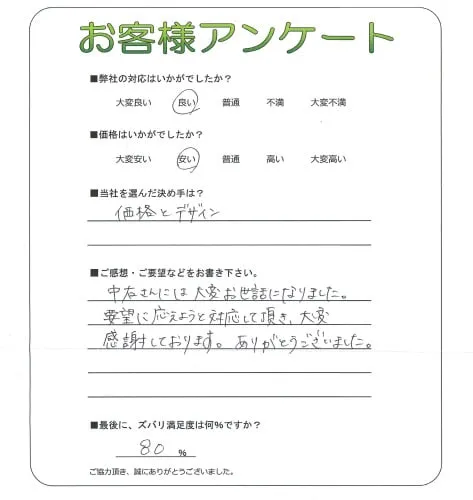 お客様アンケート
■弊社の対応はいかがでしたか？
大変良い 良い 普通 不満 大変不満
■価格はいかがでしたか？
大変安い 安い 普通 高い 大変高い
■当社を選んだ決め手は？
価格とデザイン
■ご感想・ご要望などをお書き下さい。
中右さんには大変お世話になりました。
要望に応えようと対応して頂き、大変
感謝しております。ありがとうございました。
■最後に、ズバリ満足度は何%ですか？
80 %
ご協力頂き、誠にありがとうございました。